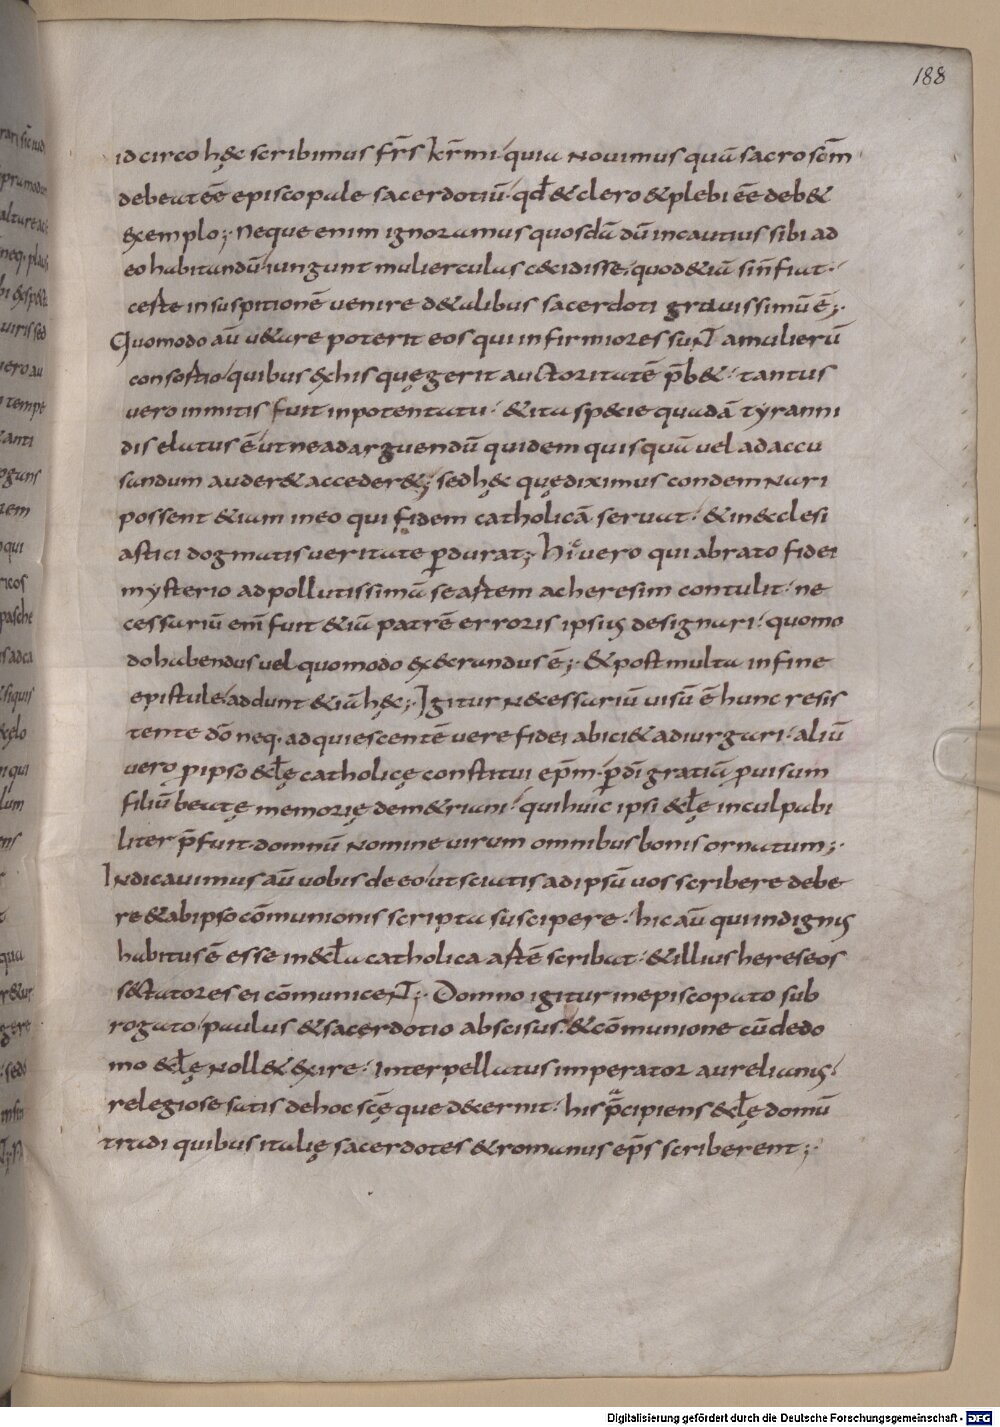 188
id circo hęc scribimus fr̄s kr̄mi quia novimus quā sacro scm̄
debeat eē episcopale sacerdotiū qđ & clero & plebi eē deb&
exemplo; Neque enim ignoramus quosdā dū incautius sibi ad
eo habitandū iungunt mulierculas cecidisse. quod &iā sin̄ fiat.
certe in suspitionē venire de talibus sacerdoti gravissimū ē;
Quomodo aū v&are poterit eos qui infirmiores sunt a mulierū
consortio quibus ex his quę gerit auctoritatē p̄b&. tantus
vero inmitis fuit in potentatu. & ita specie quadā tyranni
dis elatus ē ut ne ad arguendū quidem quisquā vel ad accu
sandum auder& acceder&; sed hęc quę diximus condemnari
possent &iam in eo qui fidem catholicā servat. & in ecclesi
astici dogmatis veritate ꝑdurat; Hi vero qui abrato fidei
mysterio ad pollutissimā se artem ac heresim contulit. ne
cessariū em̄ fuit &iā patrē erroris ipsius designari. quomo
do habendus vel quomodo execrandus ē; & post multa in fine
epistule addunt &iā hęc; Igitur necessariū visū ē hunc resis
tente dō neq. adquiescentē vere fidei abici & adiurgari. aliū
vero ꝓ ipso eccłę catholicę constitui ep̄m. ꝑ dī gratiā ꝓvisum
filiū beatę memorię demetriani. qui huic ipsi eccłę inculpabi
liter p̄fuit. domnū nomine virum omnibus bonis ornatum;
Indicavimus aū vobis de eo ut sciatis ad ipsū vos scribere debe
re & ab ipso cōmunionis scripta suscipere. hic aū qui indignus
habitus ē esse in eccła catholica artē scribat. & illius hereseos
sectatores ei cōmunicent; Domno igitur in episcopato sub
rogato paulus & sacerdotio abscisus & cōmunione cū de do
mo eccłę noll& exire. Interpellatus imperator aurelianus.
relegiose satis de hoc scę que decernit. his p̄cipiens eccłę domū
tradi quibus italię sacerdotes & romanus ep̄s scriberent;
Digitalisierung gefördert durch die Deutsche Forschungsgemeinschaft - DFG